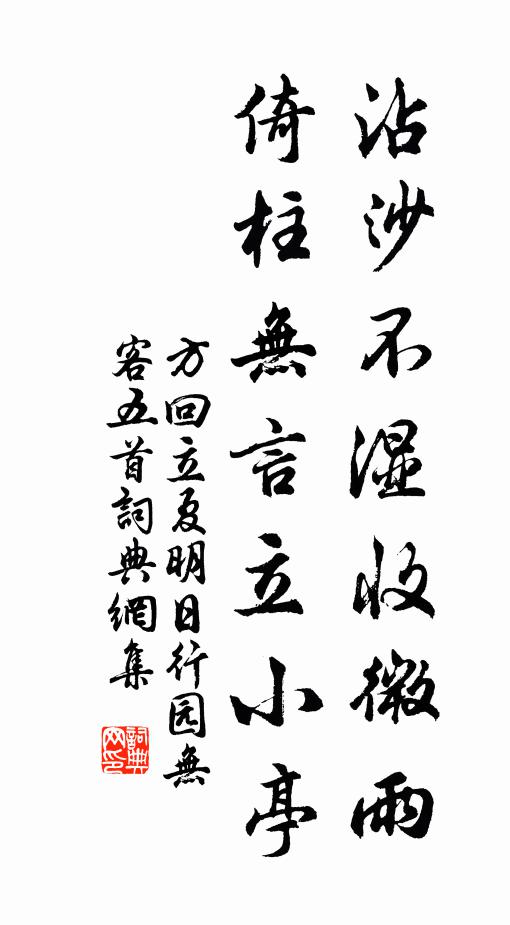 沾沙不濕收微雨
倚柱無言立小亭
方回立夏明日行园無
客五首詞典網集
詞典網印